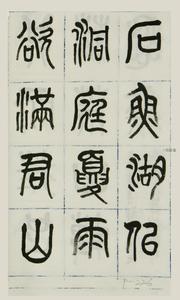 石魚湖似
洞庭夏雨
欲滿君山